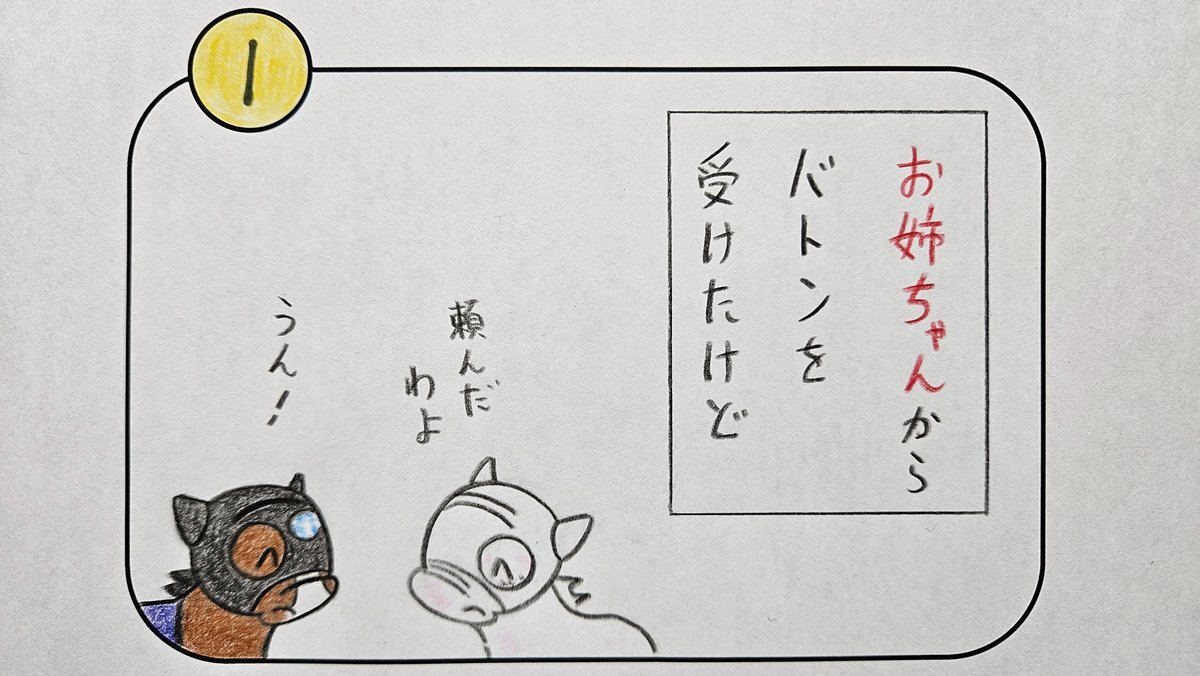 1
お姉ちゃんから
バトンを
受けたけど
頼んだ
わよ
うん!